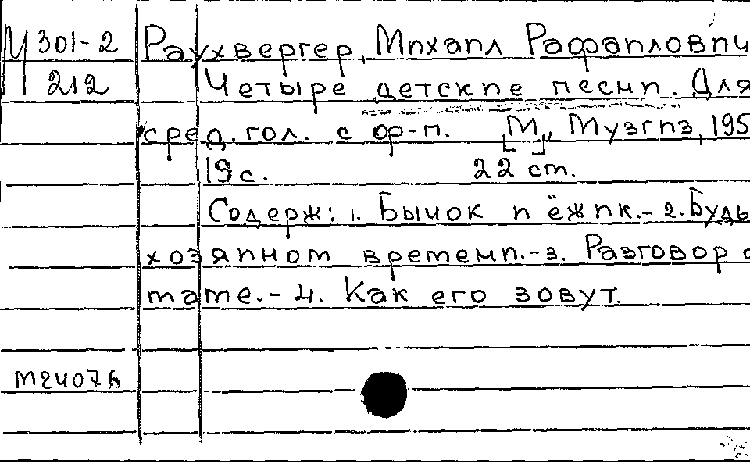 М 301-2
212
Раухвергер, Михаил Рафаилович
Четыре детские песни. Для
сред. гол. с ф-п. [М.], Музгиз, 195
19 с. 22 cm.
Содерж: 1. Бычок и ёжик.- 2. Будь
хозяином времени.-3. Разговор о
маме.- 4. Как его зовут.